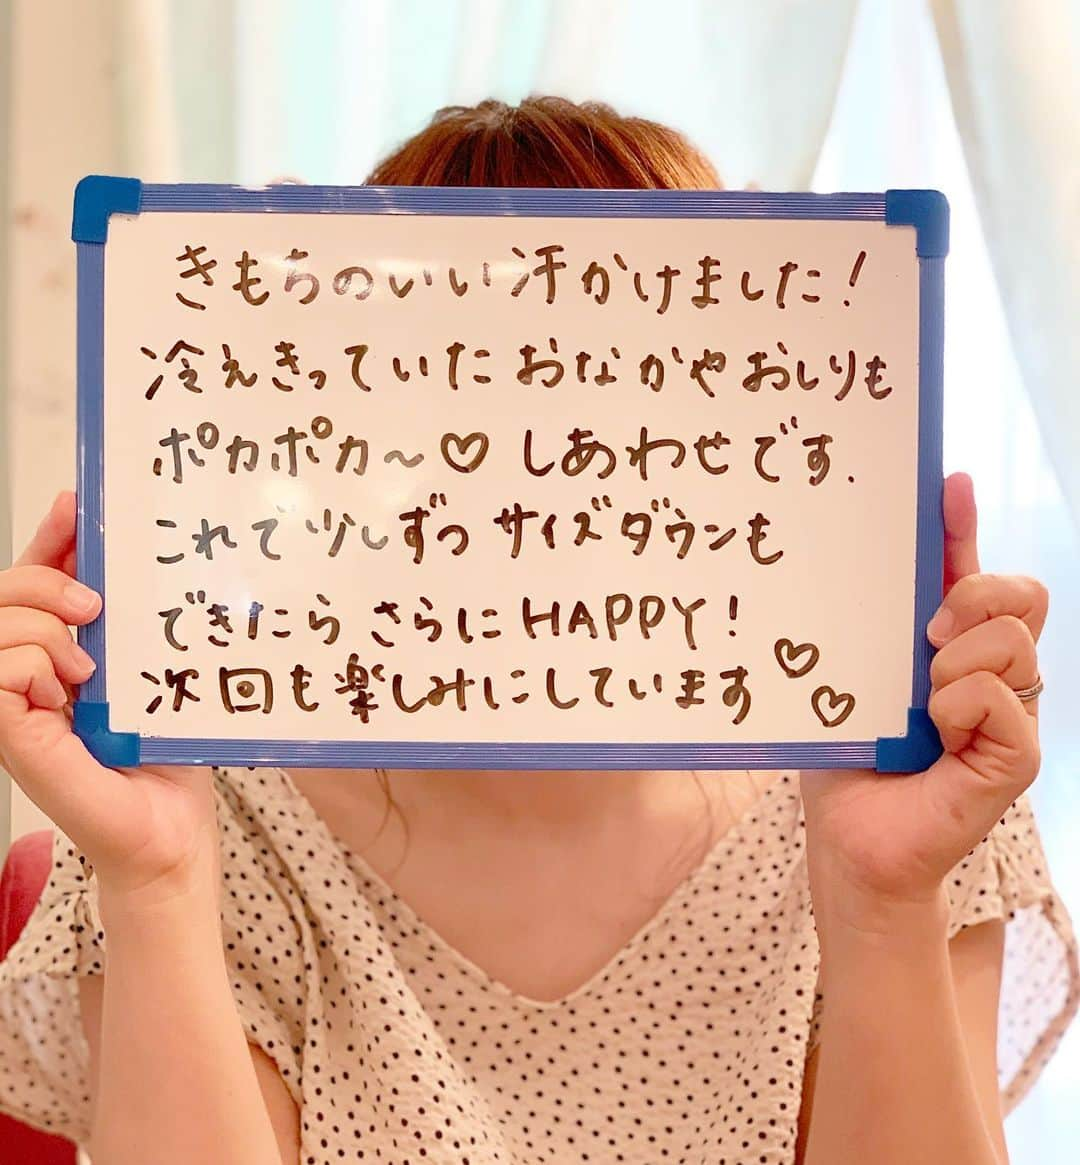 きもちのいい汗かけました!
冷えきっていたおなかやおしりも
ポカポカ〜♡ しあわせです.
これで少しずつ サイズダウンも
できたら さらに HAPPY!
次回も楽しみにしています♡♡